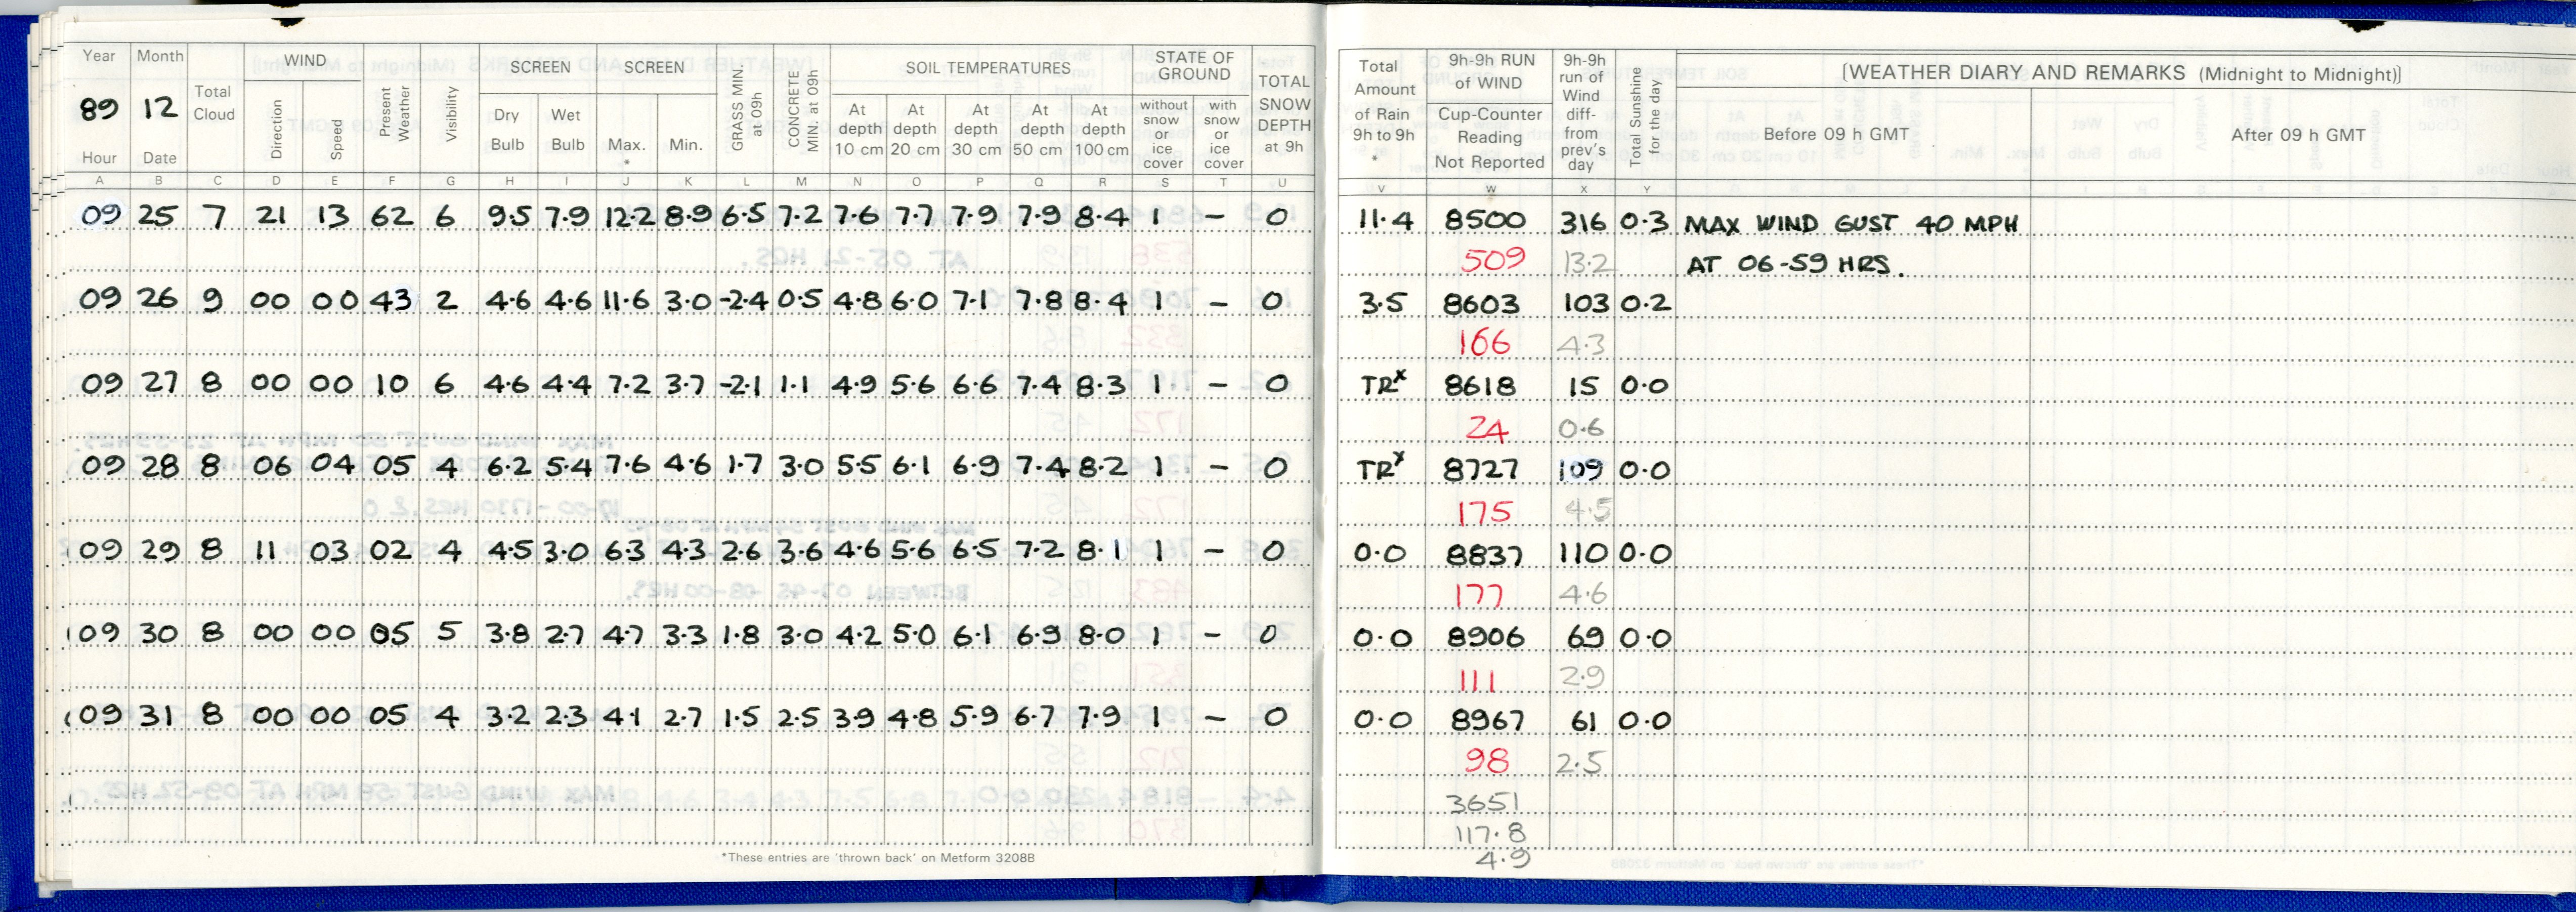 Year Month WIND SCREEN SCREEN GRASS MIN. at 09h CONCRETE MIN. at 09h SOIL TEMPERATURES STATE OF GROUND TOTAL SNOW DEPTH at 9h
89 12 Total Cloud Direction Speed Present Weather Visibility Dry Bulb Wet Bulb Max. * Min. At depth 10 cm At depth 20 cm At depth 30 cm At depth 50 cm At depth 100 cm without snow or ice cover with snow or ice cover
Hour Date
A B C D E F G H I J K L M N O P Q R S T U
09 25 7 21 13 62 6 9.5 7.9 12.2 8.9 6.5 7.2 7.6 7.7 7.9 7.9 8.4 1 – 0
09 26 9 00 00 43 2 4.6 4.6 11.6 3.0 -2.4 0.5 4.8 6.0 7.1 7.8 8.4 1 – 0
09 27 8 00 00 10 6 4.6 4.4 7.2 3.7 -2.1 1.1 4.9 5.6 6.6 7.4 8.3 1 – 0
09 28 8 06 04 05 4 6.2 5.4 7.6 4.6 1.7 3.0 5.5 6.1 6.9 7.4 8.2 1 – 0
09 29 8 11 03 02 4 4.5 3.0 6.3 4.3 2.6 3.6 4.6 5.6 6.5 7.2 8.1 1 – 0
09 30 8 00 00 05 5 3.8 2.7 4.7 3.3 1.8 3.0 4.2 5.0 6.1 6.9 8.0 1 – 0
09 31 8 00 00 05 4 3.2 2.3 4.1 2.7 1.5 2.5 3.9 4.8 5.9 6.7 7.9 1 – 0
*These entries are 'thrown back' on Metform 3208B
Total Amount of Rain 9h to 9h * 9h-9h RUN of WIND 9h-9h run of Wind diff- from prev's day Total Sunshine for the day [WEATHER DIARY AND REMARKS (Midnight to Midnight)]
Cup-Counter Reading Not Reported Before 09 h GMT After 09 h GMT
V W X Y
11.4 8500 316 0.3 MAX WIND GUST 40 MPH
509 13.2 AT 06-59 HRS.
3.5 8603 103 0.2
166 4.3
TRx 8618 15 0.0
24 0.6
TRx 8727 109 0.0
175 4.5
0.0 8837 110 0.0
177 4.6
0.0 8906 69 0.0
111 2.9
0.0 8967 61 0.0
98 2.5
3651
117.8
4.9